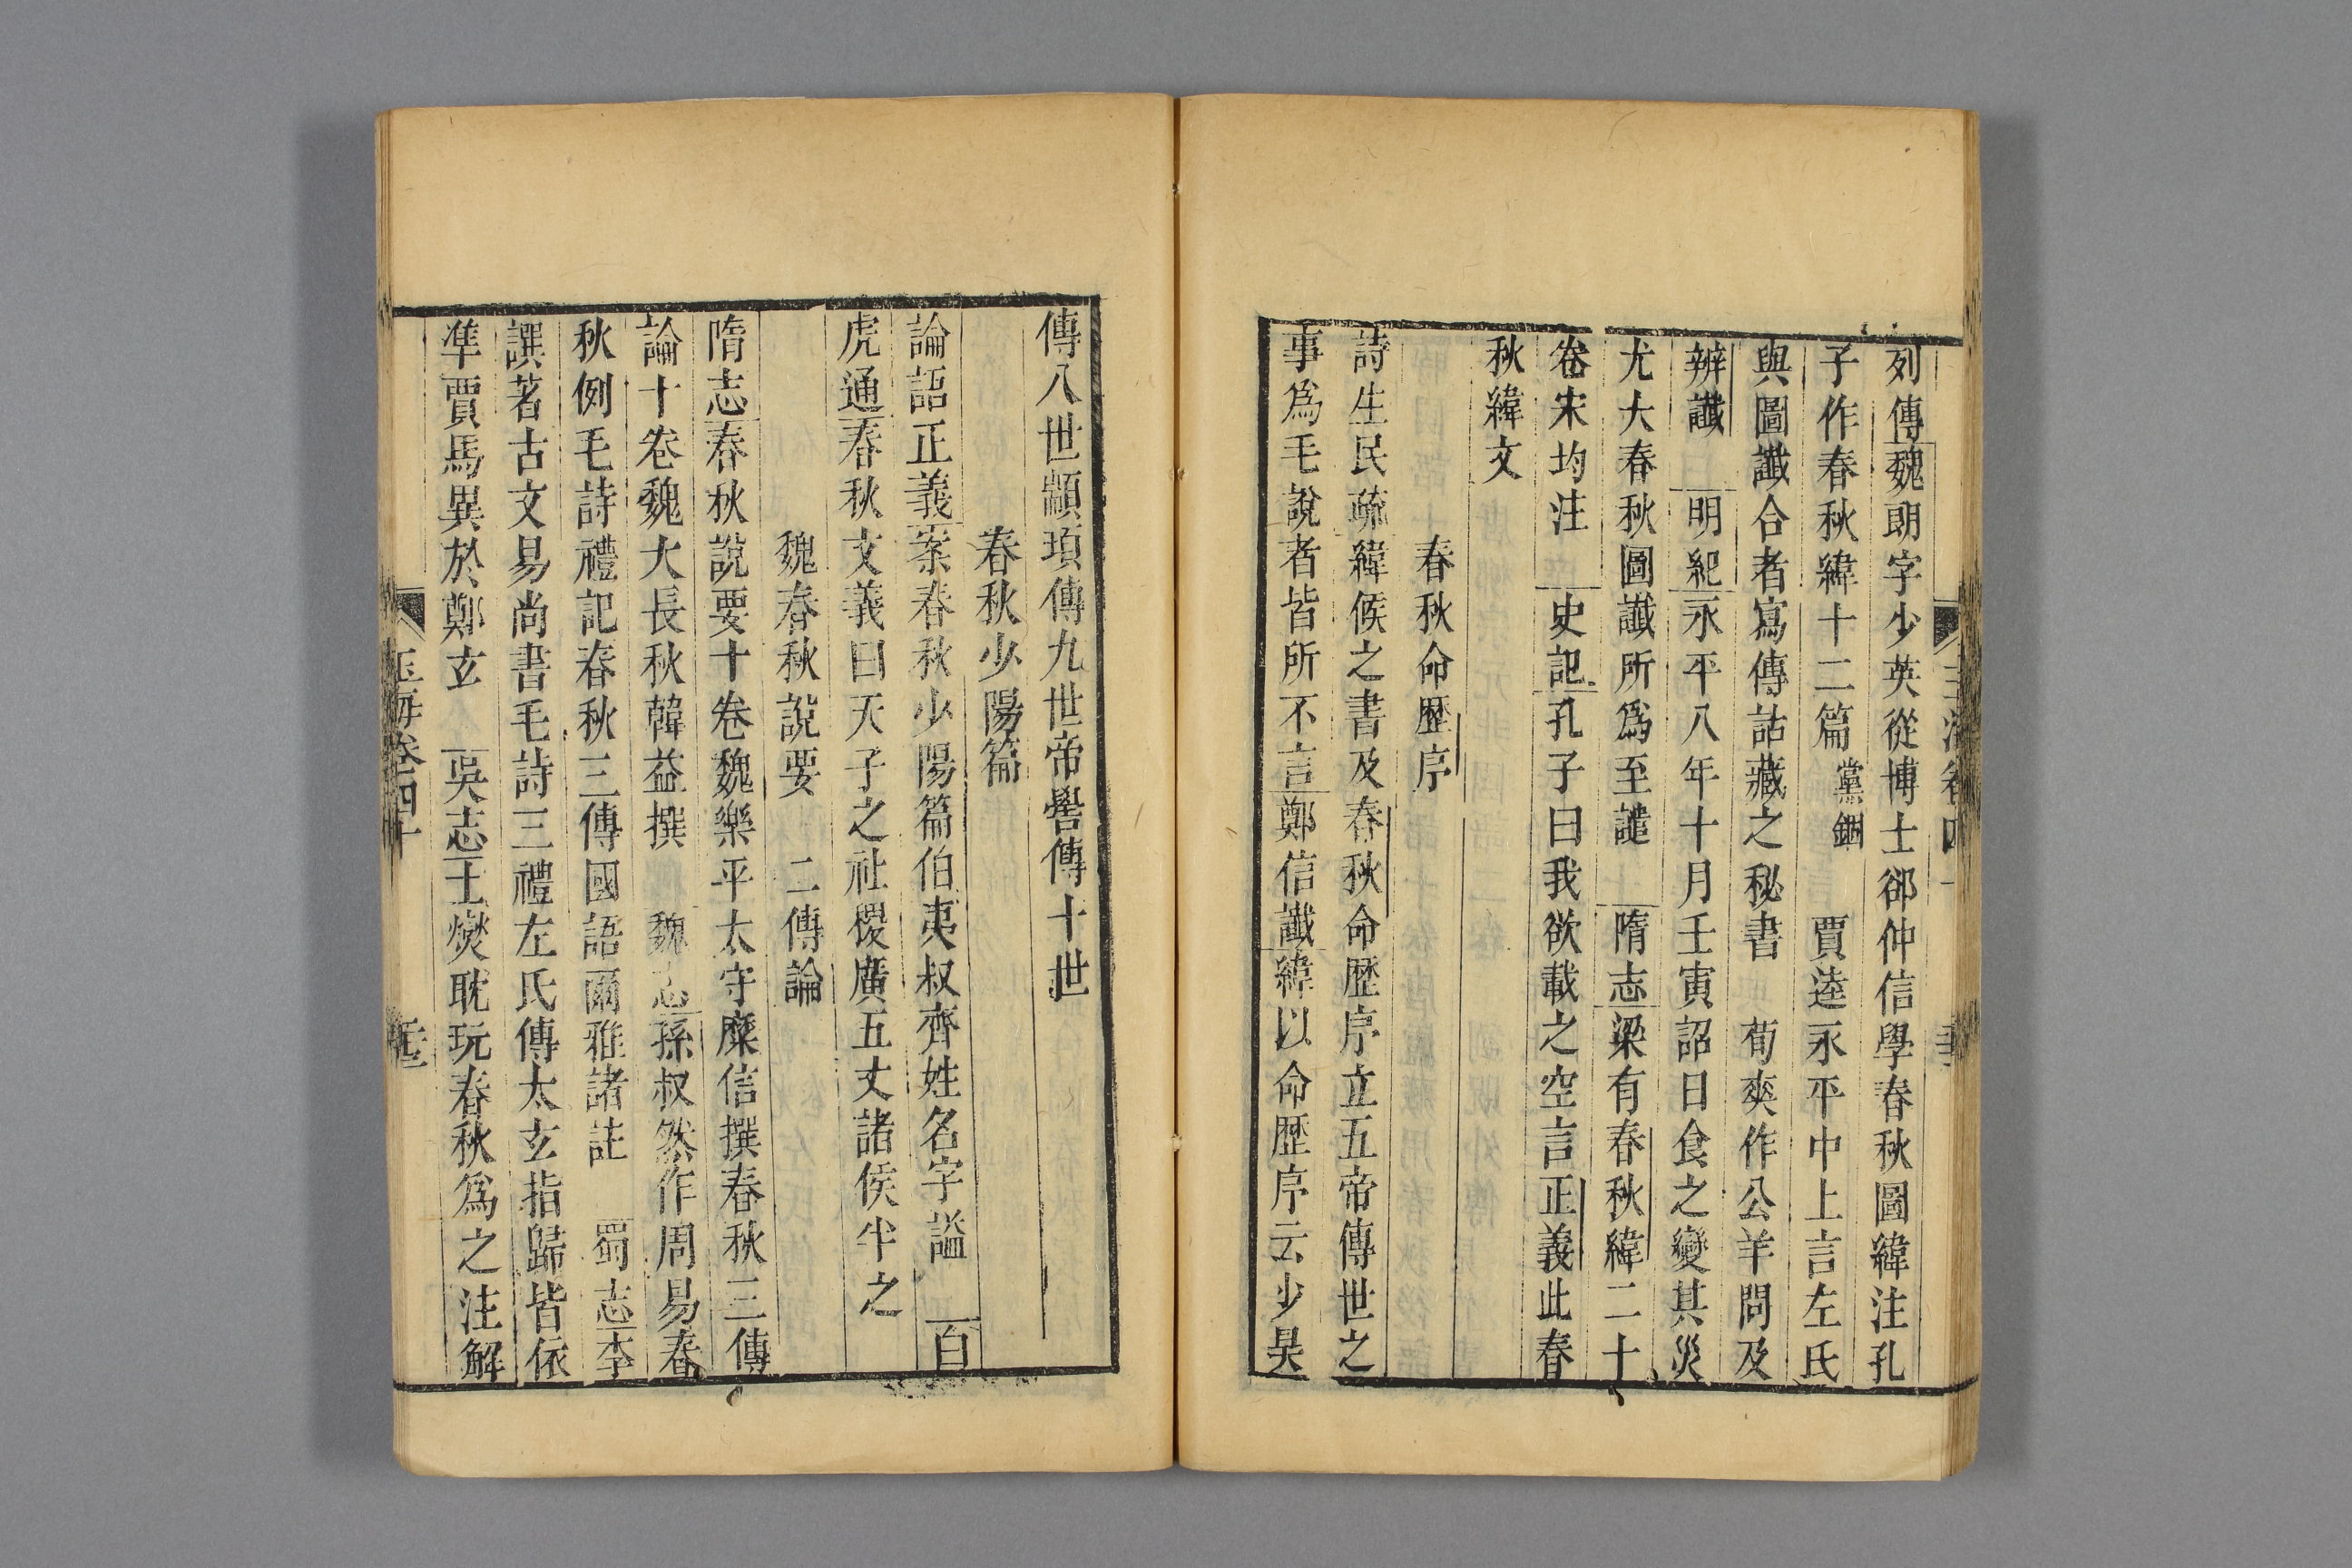 列傳魏朗字少英從博士郤仲信學春秋圖緯注孔
子作春秋緯十二篇黨錮 賈逵永平中上言左氏
與圖讖合者寫傳詁藏之秘書 荀爽作公羊問及
辨讖 明紀永平八年十月壬寅詔日食之變其災
尤大春秋圖讖所爲至譴 隋志梁有春秋緯二十
卷宋均注 史記孔子曰我欲載之空言正義此春
秋緯文
春秋命歷序
詩生民疏緯候之書及春秋命歷序立五帝傳世之
事爲毛說者皆所不言鄭信讖緯以命歷序云少昊
傳八世顓頊傳九世帝嚳傳十世
春秋少陽篇
論語正義案春秋少陽篇伯夷叔齊姓名字謚 白
虎通春秋文義曰天子之社稷廣五丈諸侯半之
魏春秋說要 二傳論
隋志春秋說要十卷魏樂平太守糜信撰春秋三傳
論十卷魏大長秋韓益撰 魏志孫叔然作周易春
秋例毛詩禮記春秋三傳國語爾雅諸註 蜀志李
譔著古文易尚書毛詩三禮左氏傳太玄指歸皆依
準賈馬異於鄭玄 吳志士燮耽玩春秋爲之注解
玉海卷四十